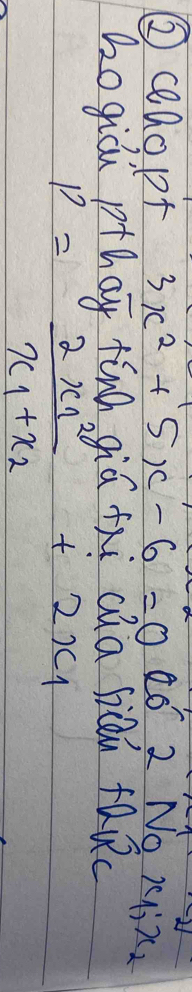 ② cho pt 3x² + 5x - 6 = 0 có 2 No x₁; x₂
ko giải pt hãy tính giá trị của biểu thức
P = 2x₁² / x₁ + x₂ + 2x₁